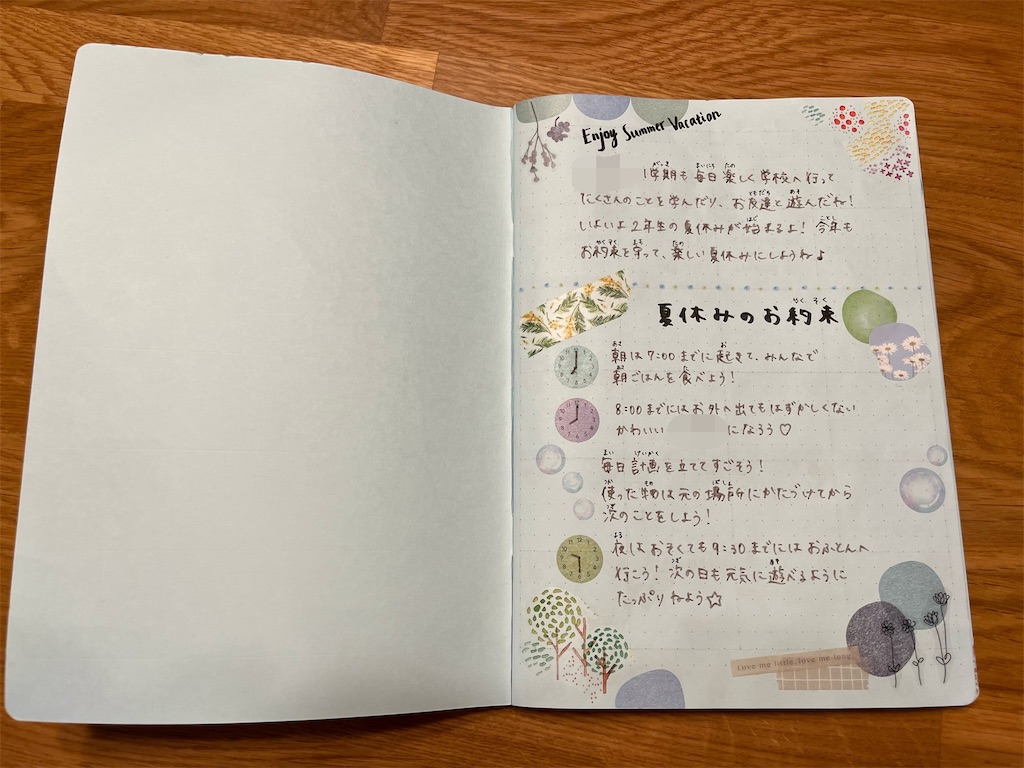 Enjoy Summer Vacation
1学期も毎日楽しく学校へ行って
たくさんのことを学んだり、お友達と遊んだね!
いよいよ2年生の夏休みが始まるよ! 今年も
お約束を守って、楽しい夏休みにしようね♪
夏休みのお約束
朝は7:00までに起きて、みんなで
朝ごはんを食べよう!
8:00までにはお外へ出てもはずかしくない
かわいい になろう♡
毎日計画を立ててすごそう!
使った物は元の場所にかたづけてから
次のことをしよう!
夜はおそくても9:30までにはおふとんへ
行こう! 次の日も元気に遊べるように
たっぷりねよう☆
Love me little, love me long